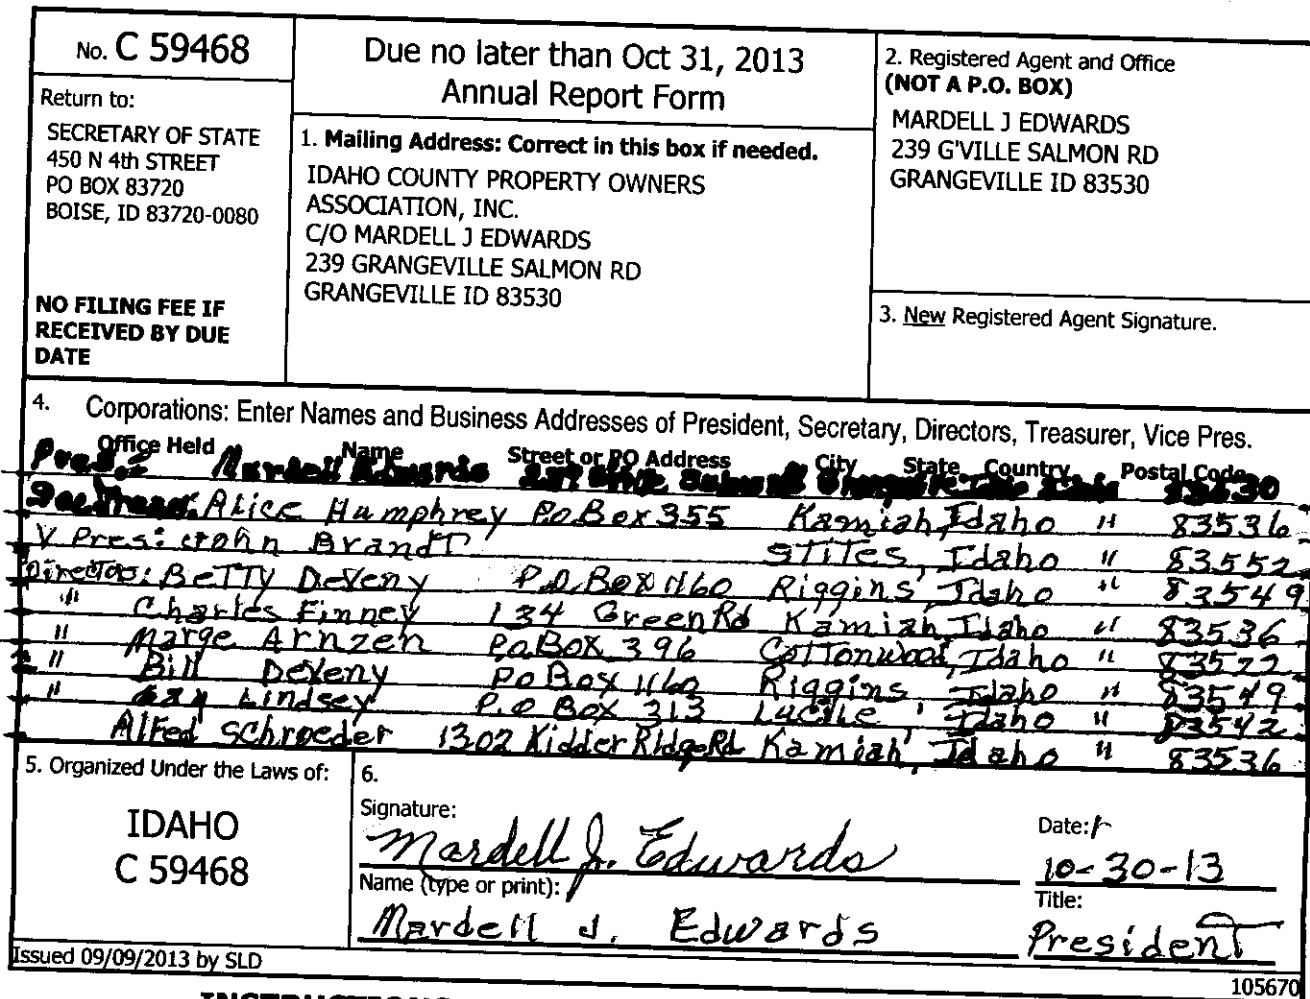 No. C 59468
Return to:
SECRETARY OF STATE
450 N 4th STREET
PO BOX 83720
BOISE, ID 83720-0080
NO FILING FEE IF
RECEIVED BY DUE
DATE
Due no later than Oct 31, 2013
Annual Report Form
1. Mailing Address: Correct in this box if needed.
IDAHO COUNTY PROPERTY OWNERS
ASSOCIATION, INC.
C/O MARDELL J EDWARDS
239 GRANGEVILLE SALMON RD
GRANGEVILLE ID 83530
2. Registered Agent and Office
(NOT A P.O. BOX)
MARDELL J EDWARDS
239 G'VILLE SALMON RD
GRANGEVILLE ID 83530
3. New Registered Agent Signature.
4. Corporations: Enter Names and Business Addresses of President, Secretary, Directors, Treasurer, Vice Pres.
Office Held Name Street or PO Address City State Country Postal Code
Pres: Mardell Edwards 83530
Alice Humphrey P.o.Box 355 Kamiah, Idaho " 83536
V Pres: John Brandt Stites, Idaho " 83552
Director: Betty DeVeny P.O. Box 1160 Riggins, Idaho " 83549
" Charles Finney 134 Green Rd Kamiah Idaho " 83536
" Marge Arnzen P.o.Box 396 Cottonwood, Idaho " 83522
" Bill DeVeny Po Box 1160 Riggins, Idaho " 83549
" Lindsey P.o Box 313 Lucile, Idaho " 83542
Alfred Schroeder 1302 Kidder Ridge Rd Kamiah, Idaho " 83536
5. Organized Under the Laws of:
IDAHO
C 59468
6.
Signature:
Mardell J. Edwards
Date:
10-30-13
Name (type or print):
Mardell J. Edwards
Title:
President
Issued 09/09/2013 by SLD
105670